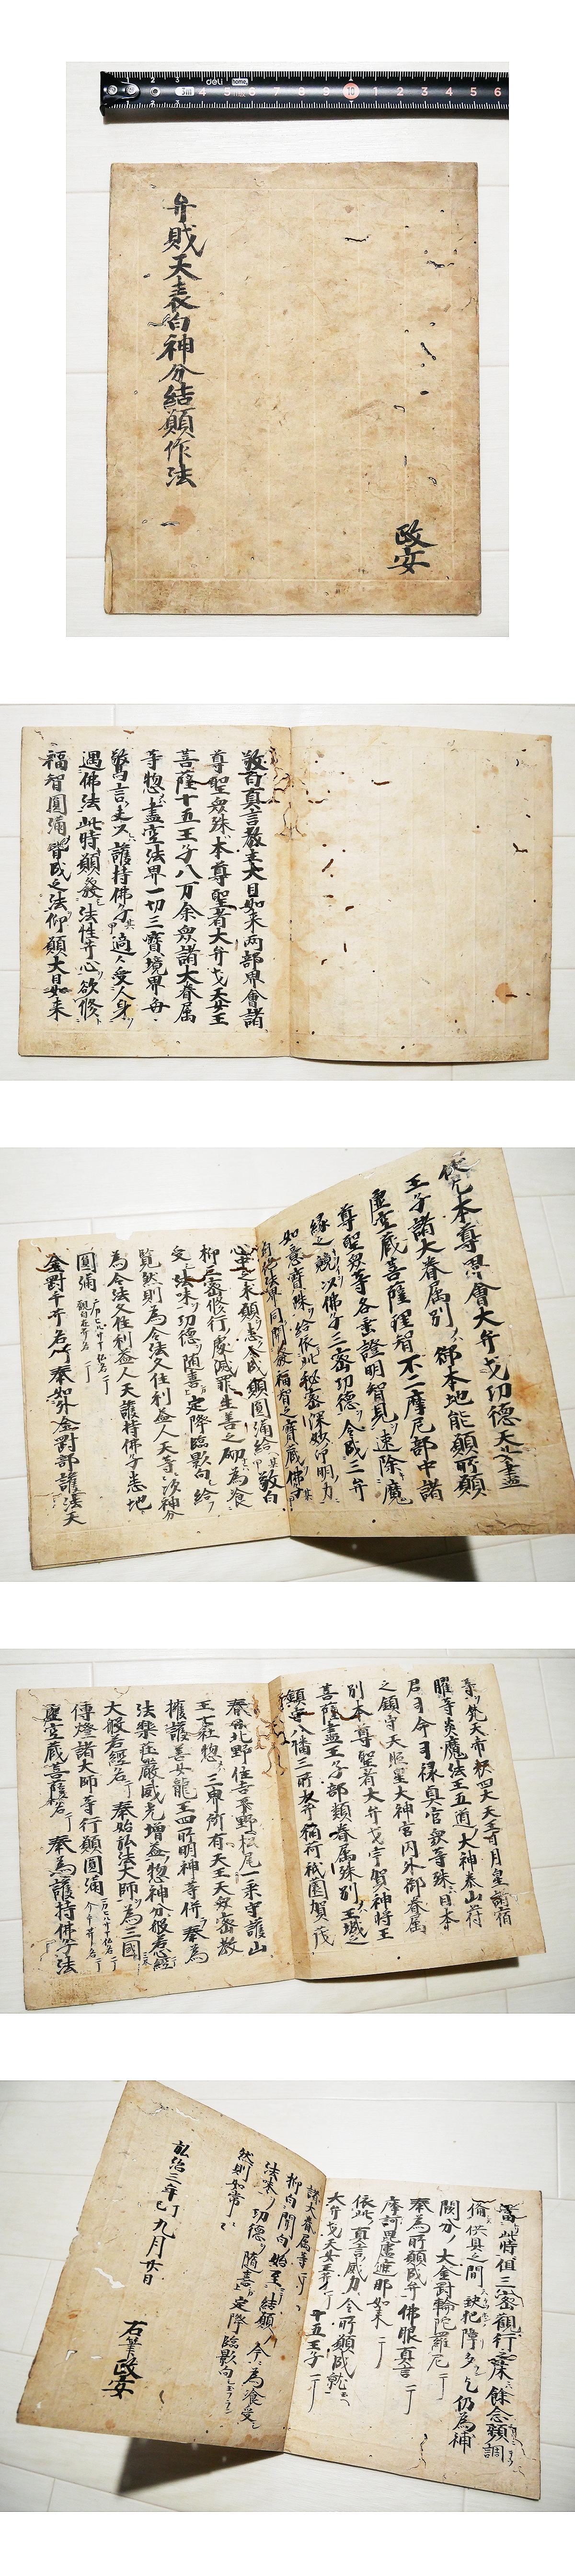 弁財天表白神分結願作法
政安
敬白真言教主大日如来両部界會諸
尊聖衆殊本尊聖者大弁才天女王
菩薩十五王子八万余衆諸大眷属
等惣盡空法界一切三寶境界毎
驚言夫以護持佛子適受人身
遇佛法此時願發法性弁心欲修
福智圓満皆成之法仰願大日如来
本尊界會大弁才功徳天女盡
王子諸大眷属別御本地能願所願
虚空蔵菩薩理智不二摩尼部中諸
尊聖衆等各垂證明智見速除魔
縁之競以佛子三密功徳令成三弁
如意寶珠給依此秘密深妙印明力
自行法界同開發福智之寶蔵佛子
心中之未願悉令成願圓満給敬白
抑三密修行處滅罪生善之砌為飡
受法味功徳随喜定降臨影向給
覧然則為令法久住利益人天等次神分
為令法久住利益人天護持佛子悉地
圓満
金剛手弁名丁奉始外金剛部護法天
等梵天帝釈四大天王日月皇諸宿
曜等炎魔法王五道大神泰山府
君司命司禄冥官衆等殊日本
之鎮守天照皇大神宮内外御眷属
別本尊聖者大弁才宇賀神将王
菩薩盡王子部類眷属殊別王城之
鎮守八幡三所大弁稲荷祇園賀茂
春日北野住吉平野松尾二乗守護山
王七社惣三卑所有天王天衆密教
擁護善女龍王四所明神等併奉為
法樂荘嚴威光増益惣神分般若心經丁
大般若經名丁奉始弘法大師為三國
傳燈諸大師等行願圓満
虚空蔵菩薩名丁奉為護持佛子法
當此時值三密觀行之床餘念頻調
備供具之間缺犯障多乞仍為補
闕分大金剛輪陀羅尼丁
奉為所願成弁佛眼真言丁
摩訶毘盧遮那如来丁
依此真言威力令所願成就
大弁才天女王弁丁十五王子丁
諸大眷属等丁
抑自開白始至結願今為飡受
法味功徳随喜定降臨影向
然則如常
弘治三年丁巳九月廿日
右筆政安